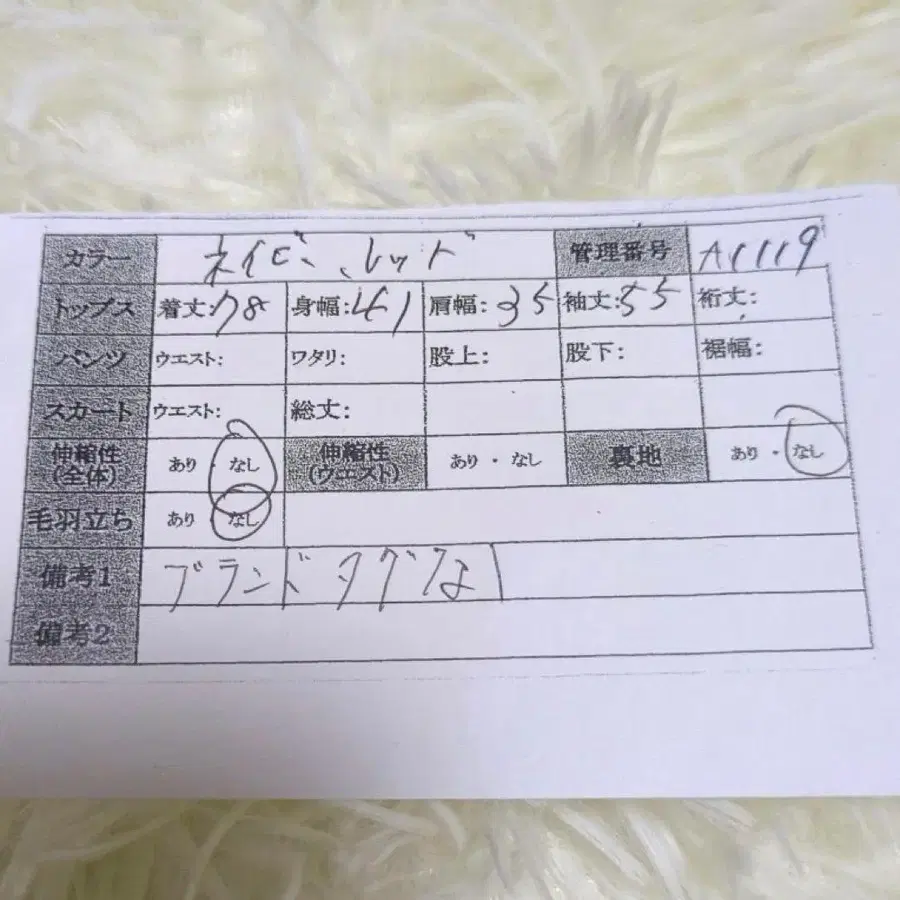 カラー ネイビー、レッド 管理番号 A1119
トップス 着丈:78 身幅:41 肩幅:35 袖丈:55 裄丈:
パンツ ウエスト: ワタリ: 股上: 股下: 裾幅:
スカート ウエスト: 総丈:
伸縮性(全体) あり なし 伸縮性(ウエスト) あり・なし 裏地 あり・なし
毛羽立ち あり なし
備考1 ブランドタグなし
備考2